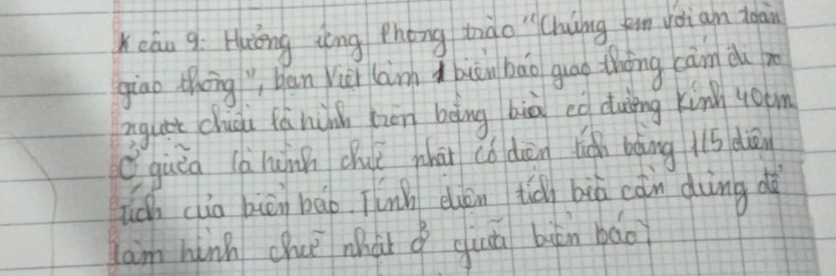 * câu 9: Hưởng ứng Phong trào "Chúng em với an toàn
giao thông", bạn Việt làm 1 biển báo giao thông cấm đi
ngược chiều là hình tròn bằng bìa có đường kính 40cm
Ở giữa là hình chữ nhật có diện tích bằng 1/5 diện
tích của biển báo. Tính diện tích bìa cần dùng để
làm hình chữ nhật ở giữa biển báo?